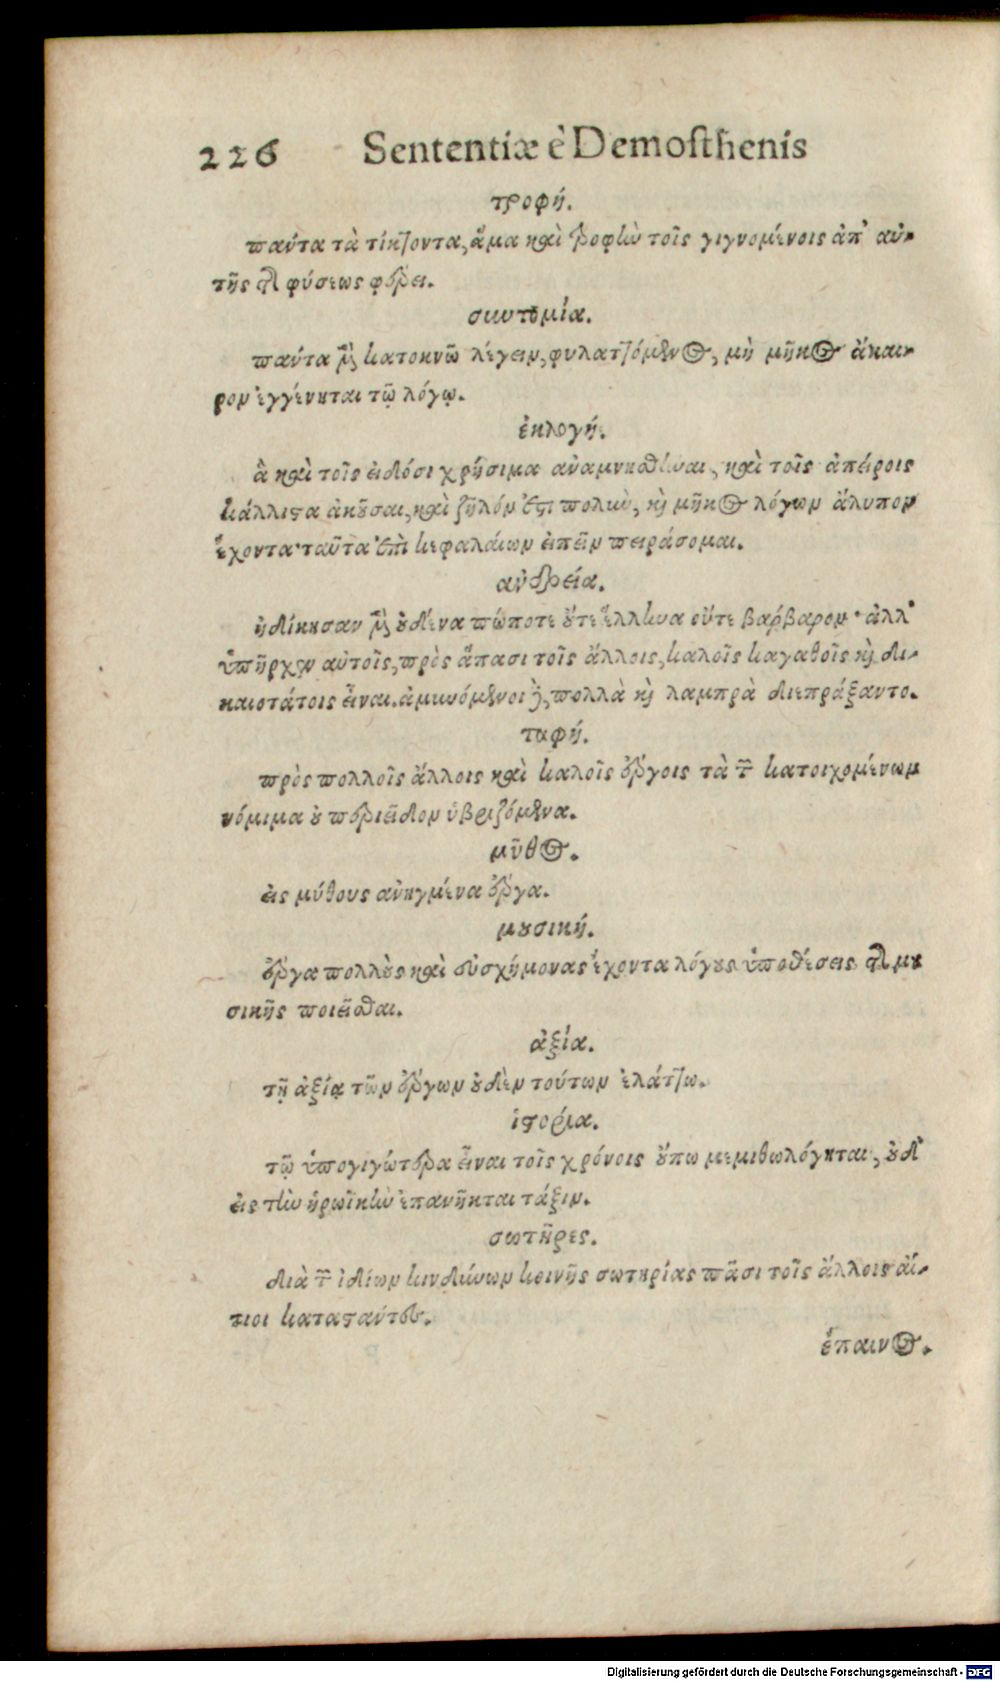 226 Sententiæ è Demosthenis
τροφή.
παύτα τὰ τίκτοντα, ἅμα καὶ τροφὴν τοῖς γιγνομένοις ἀπ' αὐ-
τῆς τῆς φύσεως φέρει.
συντομία.
παύτα μὲν κατοκνῶ λέγειν, φυλαττόμενος, μὴ μῆκος ἄκαι-
ρον ἐγγένηται τῷ λόγῳ.
ἐκλογή.
ἃ καὶ τοῖς εἰδόσι χρήσιμα αὐαμνησθῆναι, καὶ τοῖς ἀπείροις
κάλλιστα ἀκοῦσαι, καὶ ζῆλόν ἐστι πολὺν, καὶ μῆκος λόγων ἄλυπον
ἔχοντα· ταῦτα ἐπὶ κεφαλαίων εἰπεῖν πειράσομαι.
αὐδρεία.
ἠδίκησαν μὲν οὐδένα πώποτε οὔτε ἕλληνα οὔτε βαρβαρον· ἀλλ'
ὑπῆρχεν αὐτοῖς, πρὸς ἅπασι τοῖς ἄλλοις, καλοῖς καγαθοῖς καὶ δι-
καιοτάτοις εἶναι. ἀμυνόμενοι δὲ, πολλὰ καὶ λαμπρὰ διεπράξαντο.
ταφή.
πρὸς πολλοῖς ἄλλοις καὶ καλοῖς ἔργοις τὰ τῶν κατοιχομένων
νόμιμα οὐ περιεῖδον ὑβριζόμενα.
μῦθος.
εἰς μύθους αὐηγμένα ἔργα.
μουσική.
ἔργα πολλοὺς καὶ εὐσχήμονας ἔχοντα λόγους ὑποθέσεις τῆς μου
σικῆς ποιεῖσθαι.
ἀξία.
τῇ ἀξίᾳ τῶν ἔργων οὐδὲν τούτων ἐλάττω.
ἱστορία.
τῷ ὑπογυώτερα εἶναι τοῖς χρόνοις οὔπω μεμιθωλόγηται, οὐδ'
εἰς τὴν ἡρωϊκὴν ἐπανῆκται τάξιν.
σωτῆρες.
διὰ τῶν ἰδίων κινδύνων κοινῆς σωτηρίας πᾶσι τοῖς ἄλλοις αἴ-
τιοι καταστάντες.
ἔπαινος.
Digitalisierung gefördert durch die Deutsche Forschungsgemeinschaft - DFG